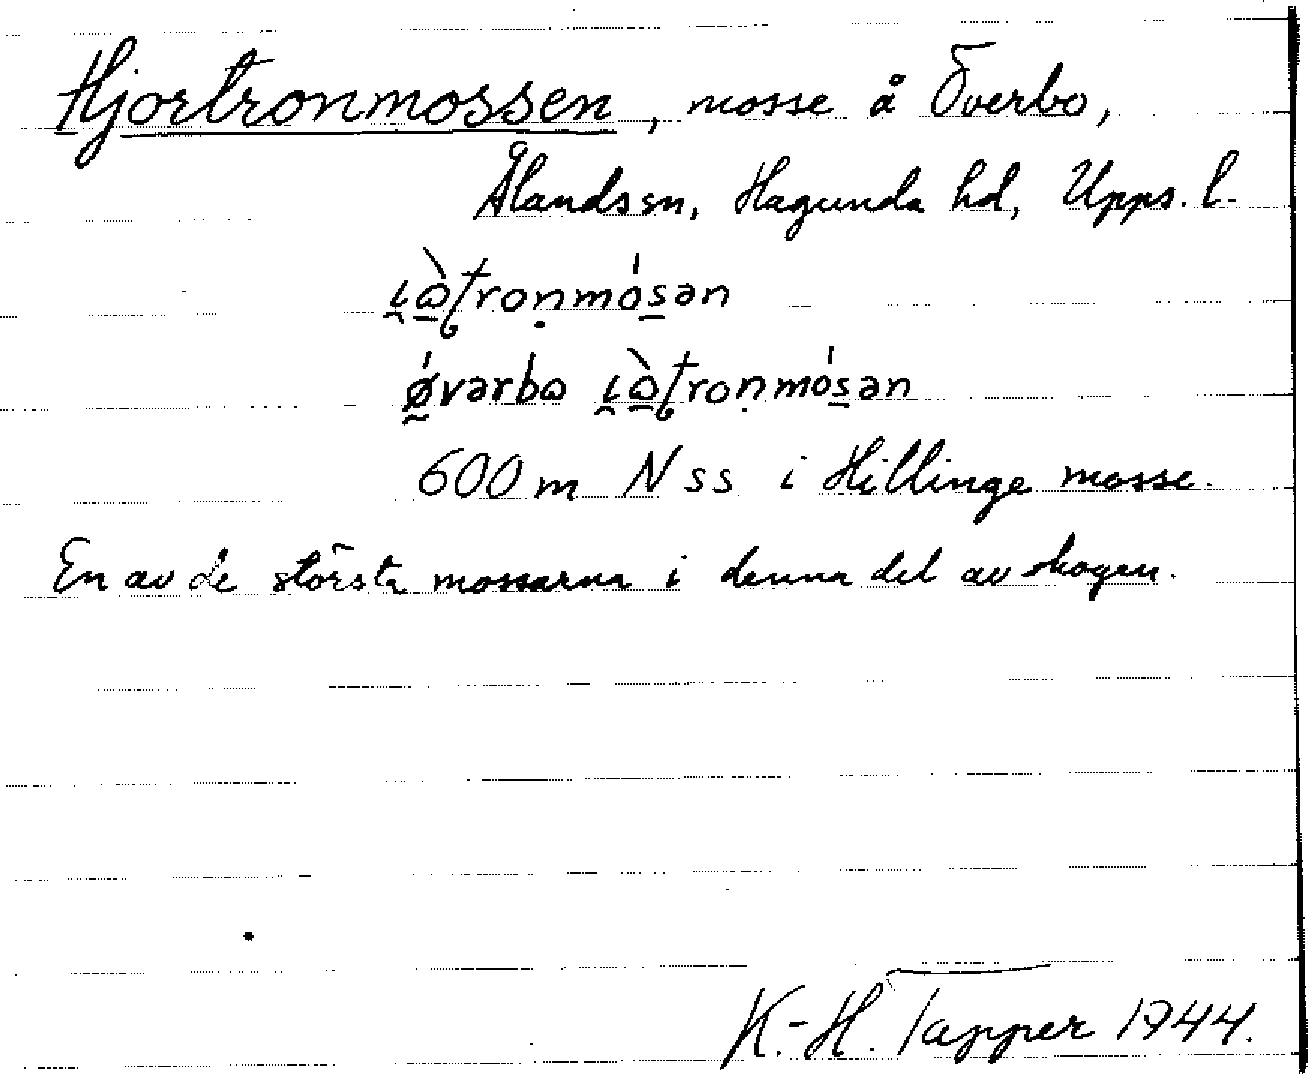 Hjortronmossen, mosse å Överbo,
Ålands sn, Hagunda hd, Upps. l.
ɩ̯ὼƭronmósən
ǿvərbω ɩ̯ὼƭronmósən
600 m N ss i Hillinge mosse.
En av de största mossarna i denna del av skogen.
K.-H. Tapper 1944.